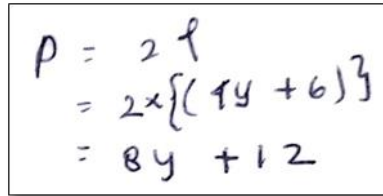 P = 2 l
= 2×{(4y + 6)}
= 8y + 12